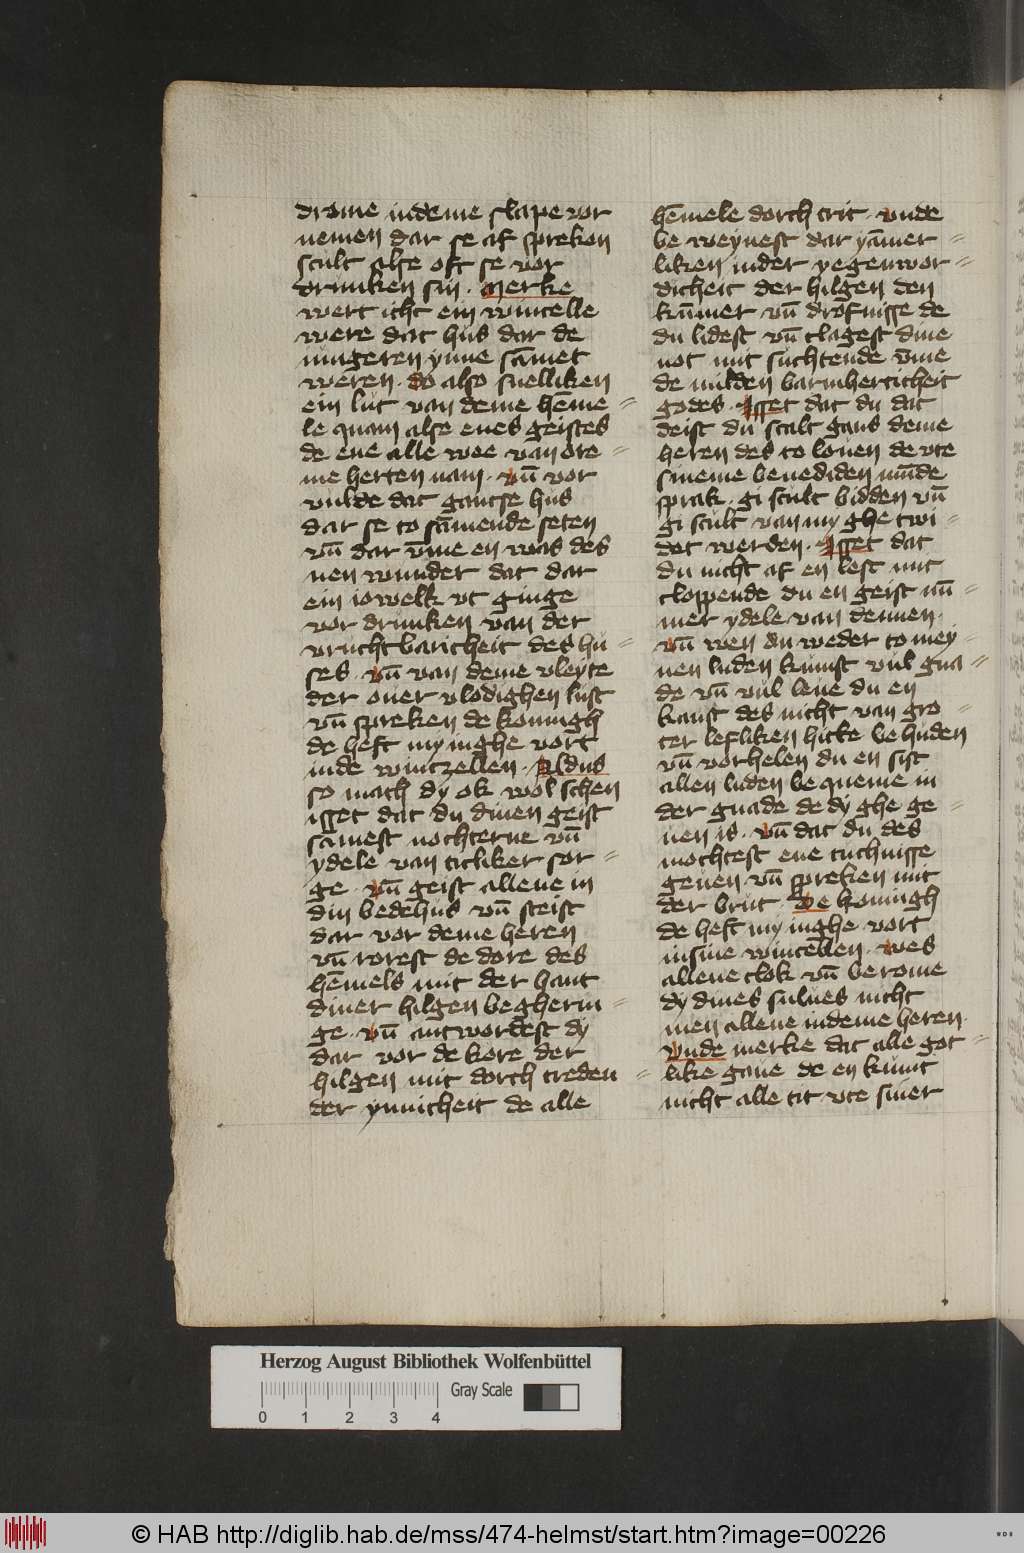 drome indeme slape vor
nemen dar se af sprekon
scult alse oft se vor
drunken sin · Merke
wert icht ein wincelle
were dat hus dar de
iungeren ynne sāmet
weren · do also snelliken
ein lut van deme hēme=
le quam alse enes geistes
de ene alle wee van ore=
me herten nam · vn̄ vor
vulde dat gantse hus
dar se to sāmende seten
vn̄ dar v̄me en was des
nen wunder dat dar
ein iowelk vt ginge
vor drunken van der
vruchtbaricheit des hu=
ses · vn̄ van deme vleyte
der ouer vlodighen lust
vn̄ spreken de koningh
de heft my inghe vort
inde wintzellen · Aldus
so mach dy ok wol schen
isset dat du dinen geist
sāmest nochterne vn̄
ydele van titliker sor=
ge · vn̄ geist allene in
din bedehus vn̄ steist
dar vor deme heren
vn̄ rorest de dore des
hēmels mit der hant
diner hilgen begherin=
ge · vn̄ antwordest dy
dar vor de kore der
hilgen mit dorch treden=
der ynnicheit de alle
hēmele dorch trit · vnde
be weynest dar yāmer=
liken inder yegenwor=
dicheit der hilgen den
kūmer vn̄ drofnisse de
du lidest vn̄ clagest dine
not mit suchtende v̄me
de milden barmherticheit
godes · Isset dat du dat
deist du scalt gans deme
heren des to louen de vte
sineme benediden mūde
sprak · gi scult bidden vn̄
gi scult van my ghe twi=
det werden · Isset dat
du nicht af en lest mit
cloppende du en geist nū=
mer ydele van dennen ·
vn̄ wen du weder to mey=
nen luden kumst vul gna=
de vn̄ vul leue du en
kanst des nicht van gro=
ter lefliken hicke behuden
vn̄ vorhelen du en sist
allen luden be queme in
der gnade de dy ghe ge=
uen is · vn̄ dat du des
mochtest ene tuchnisse
geuen vn̄ spreken mit
der brut · De koningh
de heft my inghe vort
insine wincellen · wes
allene clok vn̄ berome
dy dines sulues nicht
men allene indeme heren ·
Vnde merke dat alle got=
like gaue de en kumt
nicht alle tit vte siner
Herzog August Bibliothek Wolfenbüttel
Gray Scale
0 1 2 3 4
© HAB http://diglib.hab.de/mss/474-helmst/start.htm?image=00226
WDB